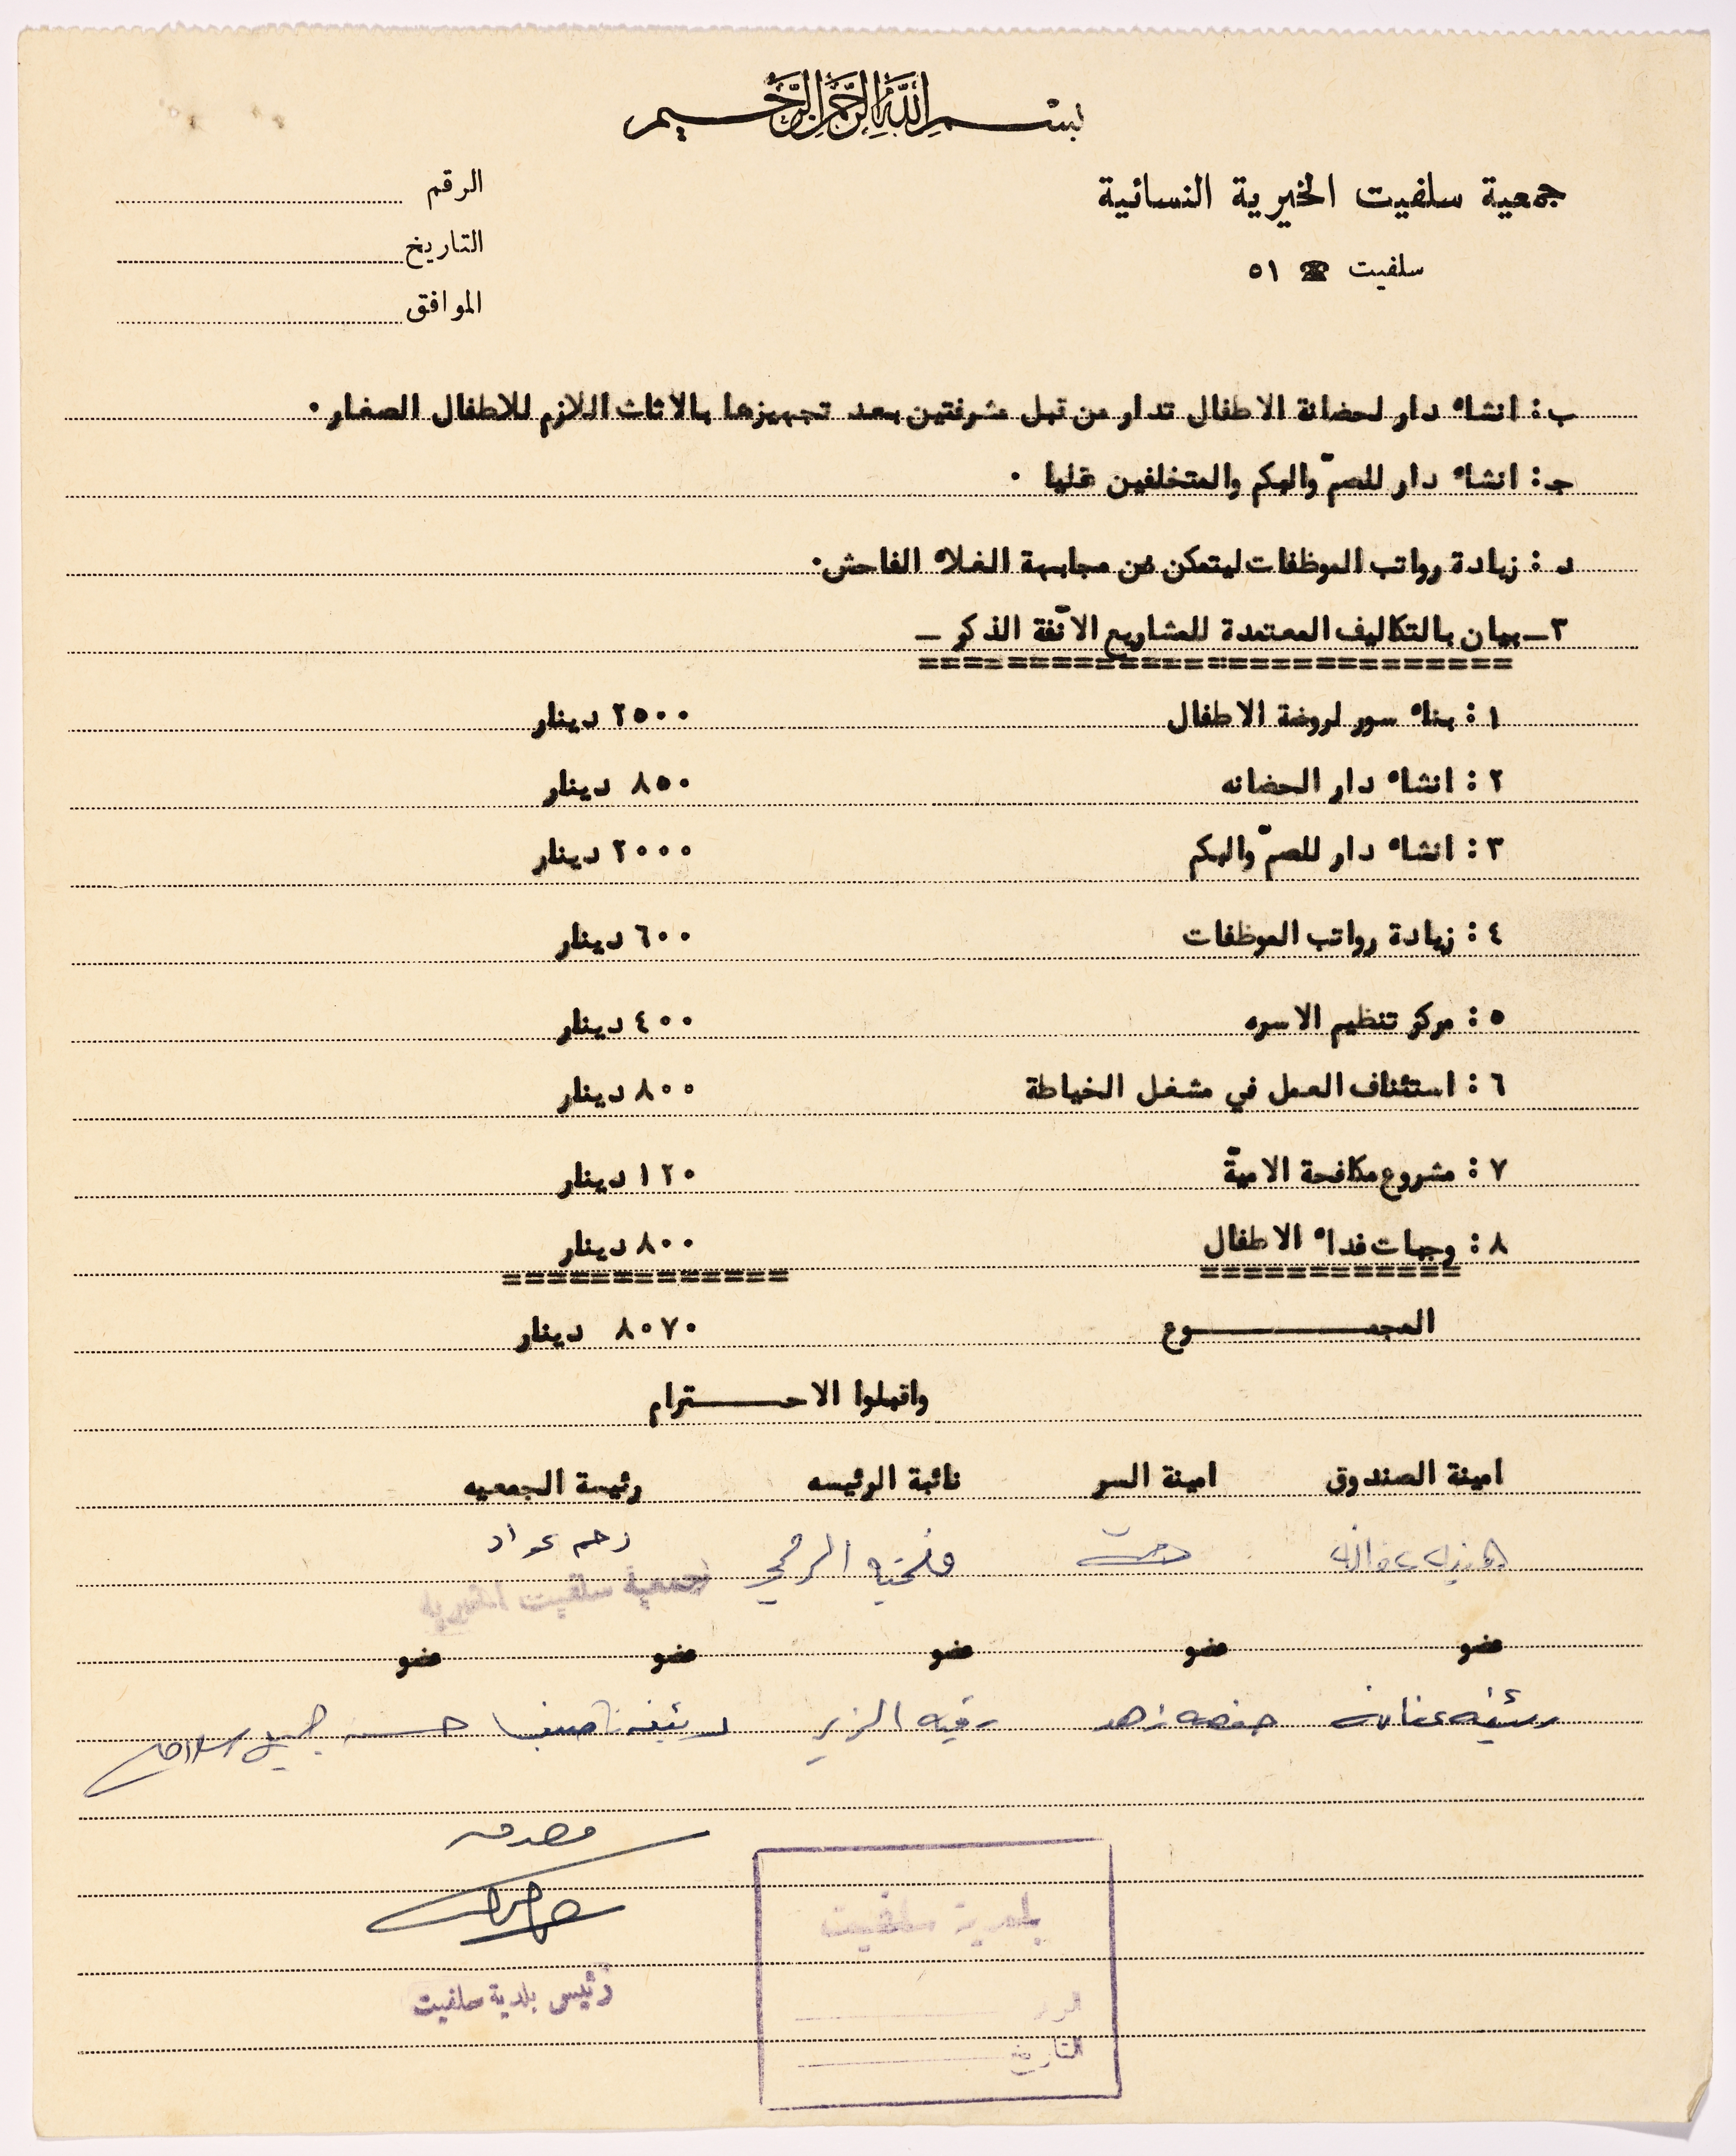 بسم الله الرحمن الرحيم
جمعية سلفيت الخيرية النسائية
سلفيت ☎ ٥١
الرقم
التاريخ
الموافق
ب: انشاء دار لحضانة الاطفال تدار من قبل مشرفتين بعد تجهيزها بالاثاث اللازم للاطفال الصغار.
جـ: انشاء دار للصمّ والبكم والمتخلفين عقليا .
د: زيادة رواتب الموظفات ليتمكن من مجابهة الغلاء الفاحش.
٣ـ بيان بالتكاليف المعتمدة للمشاريع الآنفة الذكر ـ
١: بناء سور لروضة الاطفال ٢٥٠٠ دينار
٢: انشاء دار الحضانه ٨٥٠ دينار
٣: انشاء دار للصمّ والبكم ٢٠٠٠ دينار
٤: زيادة رواتب الموظفات ٦٠٠ دينار
٥: مركز تنظيم الاسره ٤٠٠ دينار
٦: استئناف العمل في مشغل الخياطة ٨٠٠ دينار
٧: مشروع مكافحة الاميّة ١٢٠ دينار
٨: وجبات غداء الاطفال ٨٠٠ دينار
المجمـــــــوع ٨٠٧٠ دينار
واقبلوا الاحـــــترام
امينة الصندوق امينة السر نائبة الرئيسه رئيسة الجمعيه
فتحيه الرمحي
عواد
جمعية سلفيت الخيرية
عضو عضو عضو عضو عضو
رقيه الزير
مصدق
بلدية سلفيت
الرقم
التاريخ
رئيس بلدية سلفيت